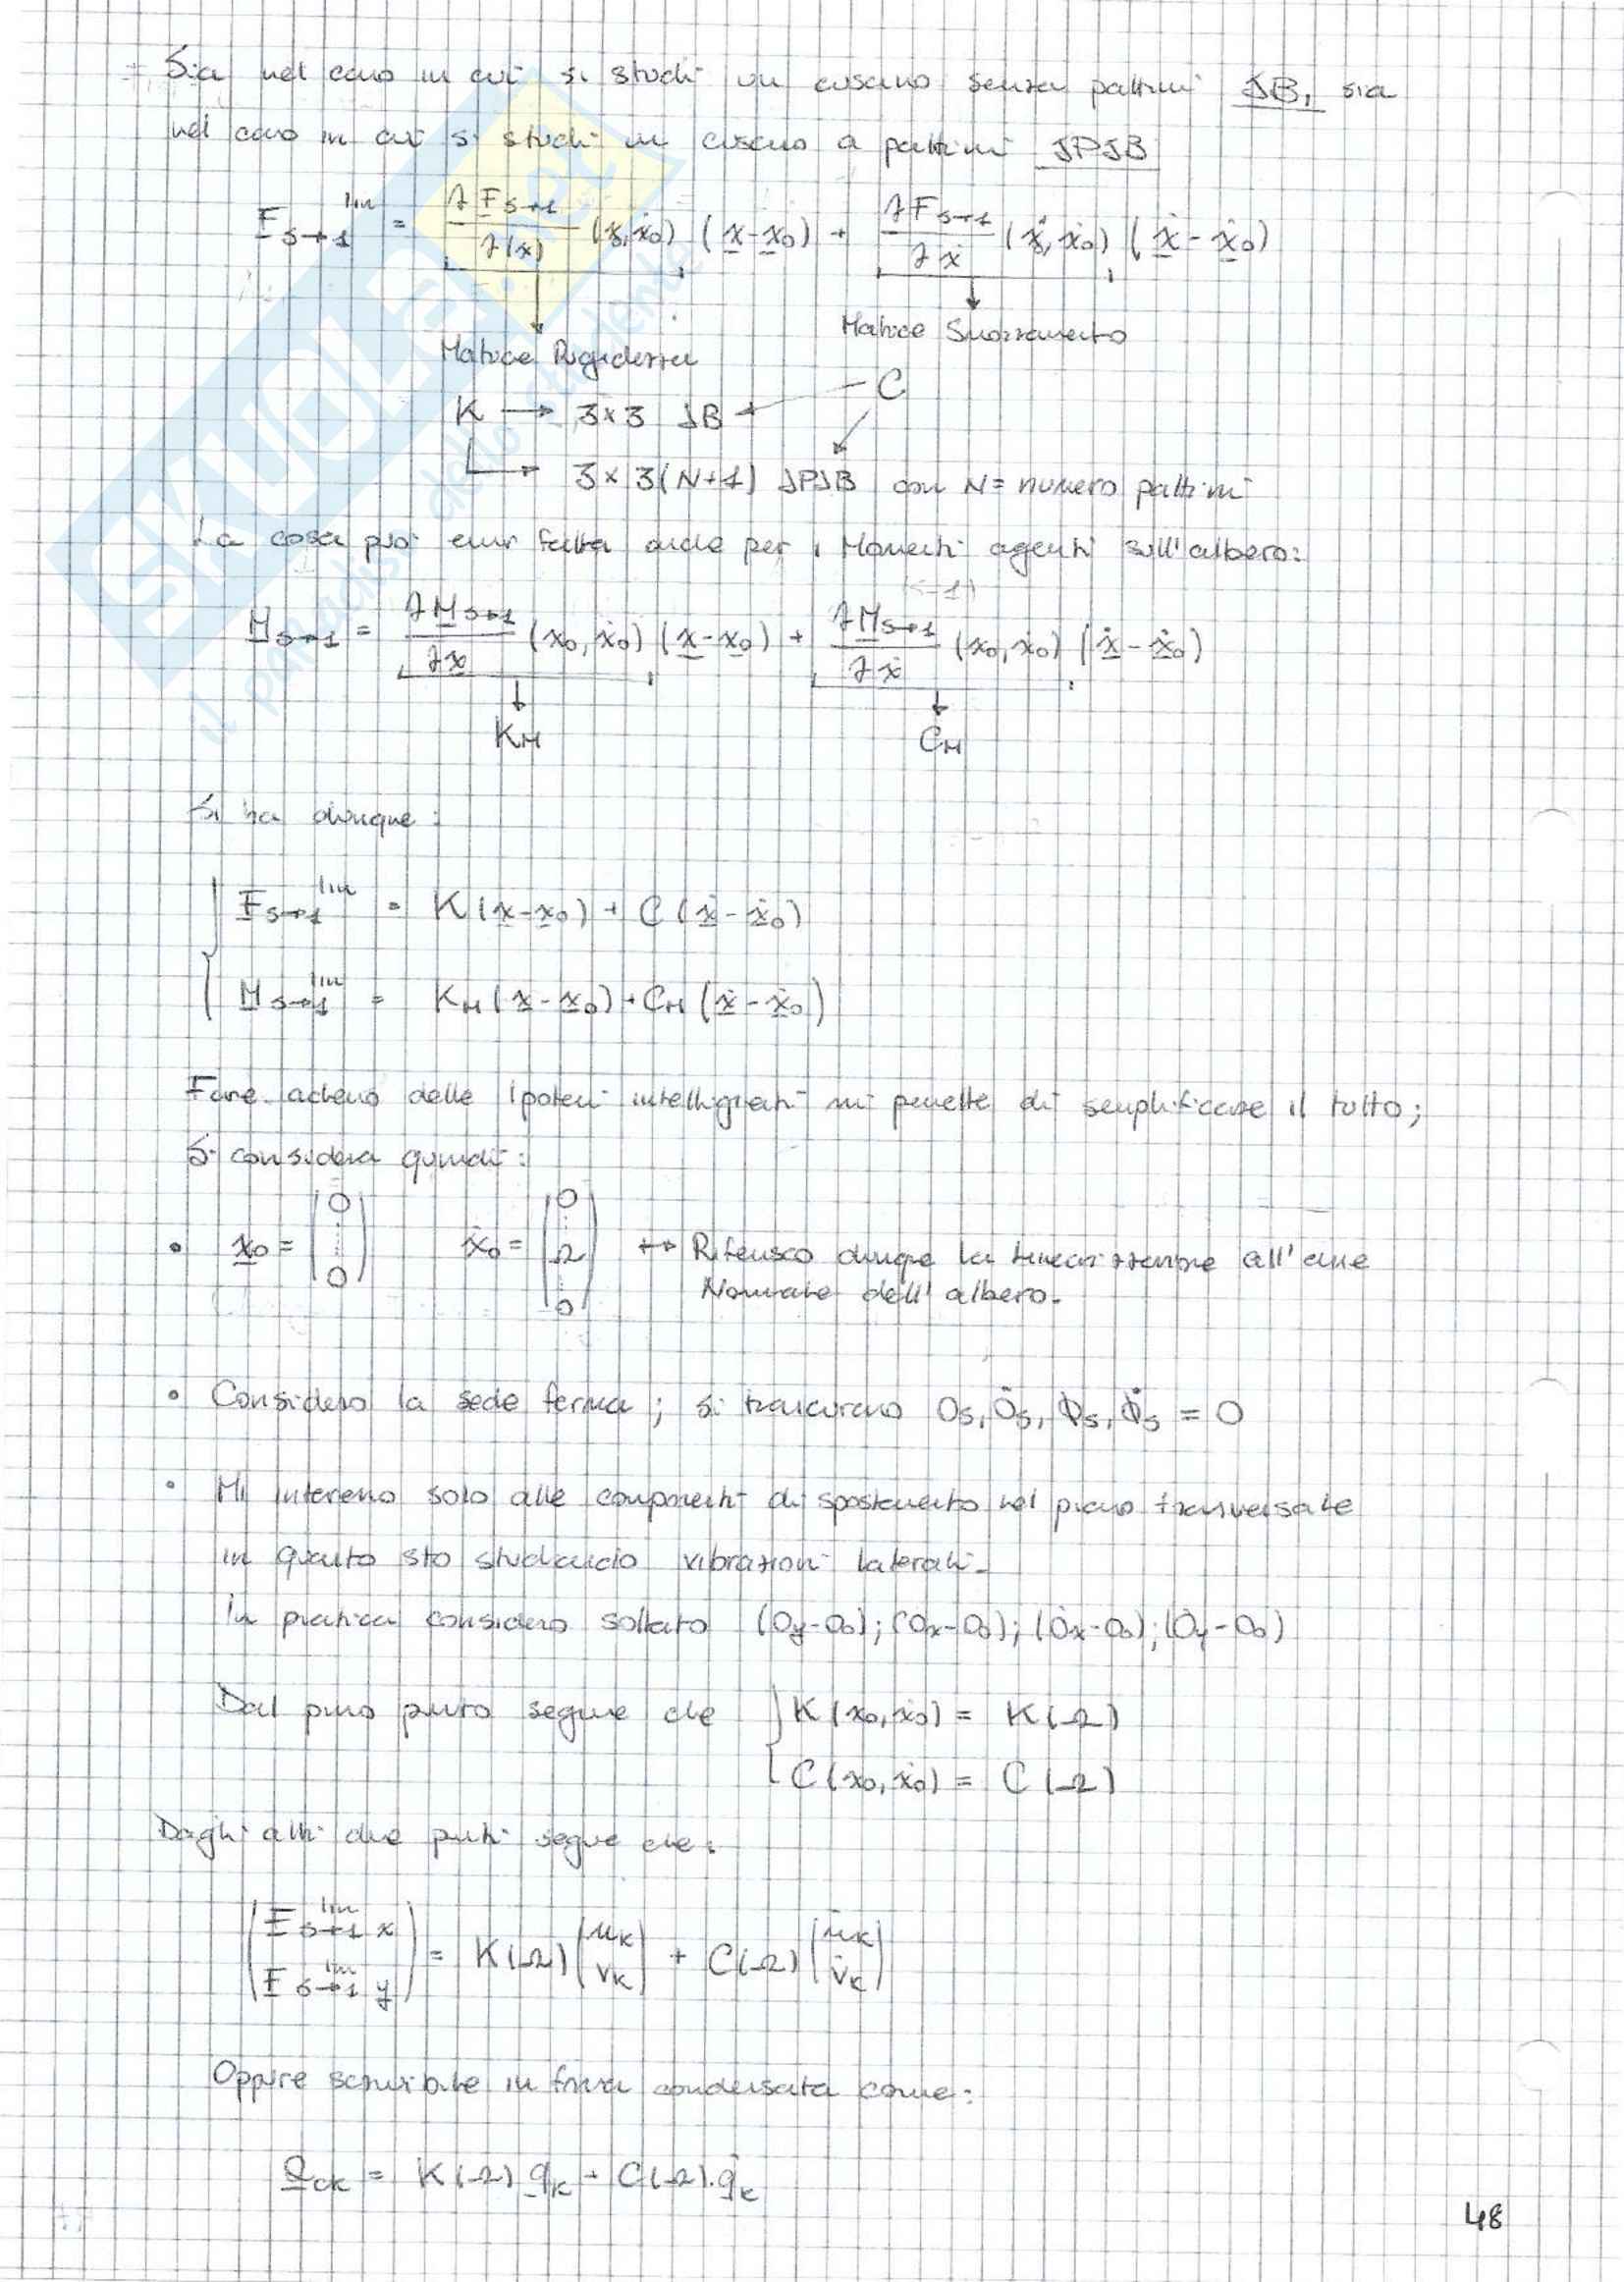 Sia nel caso in cui si studi un cuscino senza pattini JB, sia
nel caso in cui si studi un cuscino a pattini JPJB
F_{s→1}^{lin} = ∂F_{s→1}/∂(x) (x_0, ẋ_0) (x - x_0) + ∂F_{s→1}/∂ẋ (x_0, ẋ_0) (ẋ - ẋ_0)
Matrice Smorzamento
Matrice Rigidezza
K → 3x3 JB ← C
↳ 3 x 3(N+1) JPJB con N = numero pattini
La cosa può esser fatta anche per i Momenti agenti sull'albero:
(s→1)
M_{s→1} = ∂M_{s→1}/∂x (x_0, ẋ_0) (x - x_0) + ∂M_{s→1}/∂ẋ (x_0, ẋ_0) (ẋ - ẋ_0)
K_M C_M
Si ha dunque:
F_{s→1}^{lin} = K(x - x_0) + C(ẋ - ẋ_0)
M_{s→1}^{lin} = K_M(x - x_0) + C_M(ẋ - ẋ_0)
Fare adesso delle Ipotesi intelligenti mi permette di semplificare il tutto;
Si considera quindi:
• x_0 = (0 ⋮ 0) ẋ_0 = (0 ⋮ Ω ⋮ 0) ↔ Riferisco dunque la linearizzazione all'asse
Nominale dell'albero.
• Considero la sede ferma; si trascurano O_s, Ȯ_s, Φ_s, Φ̇_s = 0
• Mi interesso solo alle componenti di spostamento nel piano trasversale
in quanto sto studiando vibrazioni laterali.
In pratica considero soltanto (O_y - O_0); (O_x - O_0); (Ȯ_x - Ȯ_0); (Ȯ_y - Ȯ_0)
Dal primo punto segue che K(x_0, ẋ_0) = K(Ω)
C(x_0, ẋ_0) = C(Ω)
Dagli altri due punti segue che:
(F_{s→1 x}^{lin} F_{s→1 y}^{lin}) = K(Ω) (u_K v_K) + C(Ω) (u̇_K v̇_K)
Oppure scrivibile in forma condensata come:
Q_{ck} = K(Ω) q_K + C(Ω) · q̇_K
48
SKUOLA.net
il paradiso dello studente